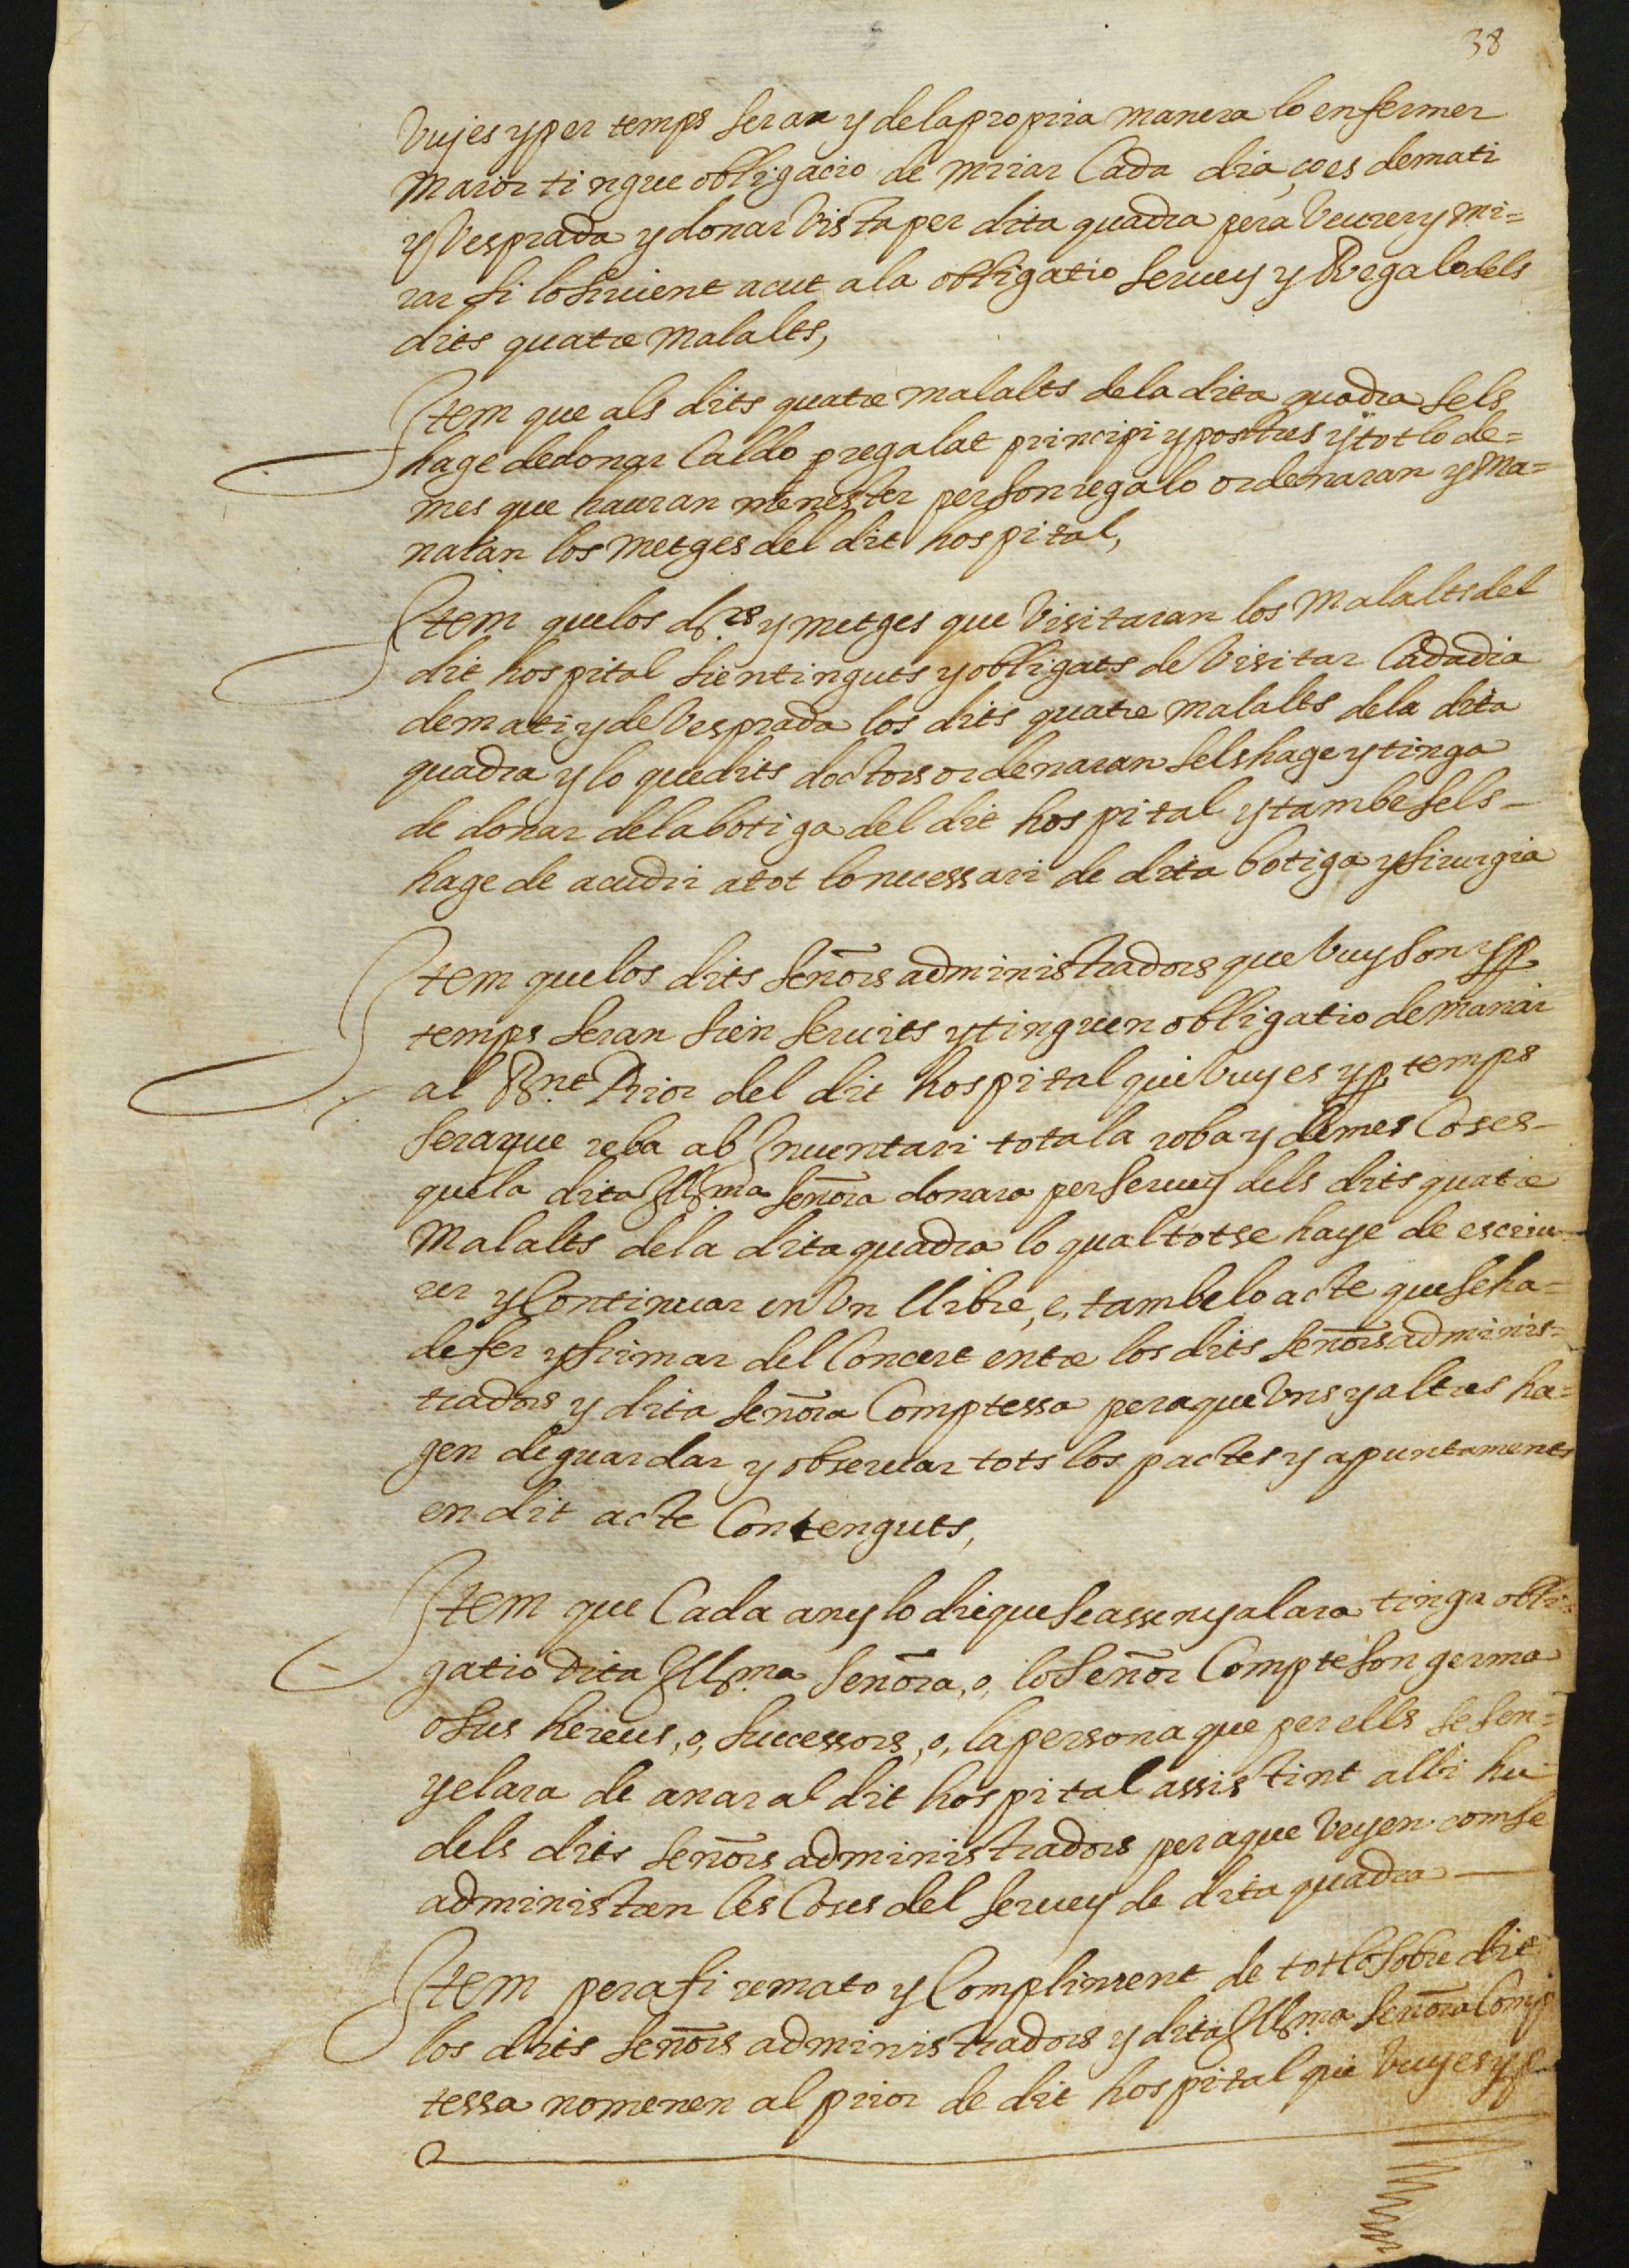 38
Vuy es y per temps seran y de la propria manera lo enfermer
maior tingue obligacio de mirar Cada dia, ço es de mati
y Vesprada y donar Vista per dita quadra pera Veurer y mi=
rar si lo siruient acut a la obligatio seruey y Regalo dels
dits quatre Malalts,
Item que als dits quatre malalts de la dita quadra sels
hage de donar Caldo pregalat principi y postres y tot lo de=
mes que hauran menester per son regalo ordenaran y Ma=
naran los Metges del dit hospital,
Item que los drs y metges que Visitaran los Malalts del
dit hospital sien tinguts y obligats de Visitar Cada dia
de mati y de Vesprada los dits quatre malalts de la dita
quadra y lo que dits doctors ordenaran sels hage y tinga
de donar de la botiga del dit hospital y tambe sels
hage de acudir a tot lo necessari de dita botiga y sirurgia
Item que los dits señors administradors que Vuy son y p
temps seran sien seruits y tinguen obligatio de manar
al Rnt Prior del dit hospital qui Vuy es y p temps
sera que reba ab Inuentari tota la roba y demes Coses
que la dita Illma señora donara per seruey dels dits quatre
Malalts de la dita quadra lo qual tot se haye de escriu
rer y Continuar en Vn llibre, e, tambe lo acte que se ha=
de fer y firmar del Concert entre los dits señors adminis=
tradors y dita señora Comptessa pera que Vns y altres ha=
gen de guardar y obseruar tots los pactes y apuntaments
en dit acte Contenguts,
Item que Cada any lo die que se assenyalara tinga obli=
gatio dita Illma señora, o, lo señor Compte son germa
o sus hereus, o, successors, o, la persona que per ells se sen=
yelara de anar al dit hospital assistint alli hu
dels dits señors administradors pera que Veyen com se
administren les Coses del seruey de dita quadra
Item pera fi remato y Compliment de tot lo sobre dit
los dits señors administradors y dita Illma señora Comp
tessa nomenen al prior de dit hospital qui Vuy es y p